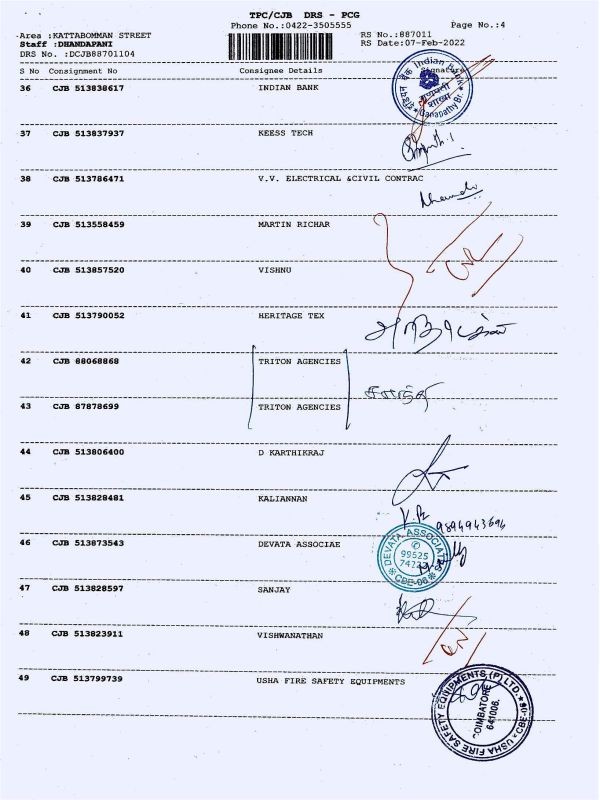 TPC/CJB DRS - PCG
Phone No.:0422-3505555
Page No.:4
Area :KATTABOMMAN STREET
RS No.:887011
Staff :DHANDAPANI
RS Date:07-Feb-2022
DRS No. :DCJB88701104
S No Consignment No Consignee Details Signature
36 CJB 513838617 INDIAN BANK
Indian Bank
Ganapathy Br.
37 CJB 513837937 KEESS TECH
38 CJB 513786471 V.V. ELECTRICAL &CIVIL CONTRAC
39 CJB 513558459 MARTIN RICHAR
40 CJB 513857520 VISHNU
41 CJB 513790052 HERITAGE TEX
42 CJB 88068868 TRITON AGENCIES
43 CJB 87878699 TRITON AGENCIES
44 CJB 513806400 D KARTHIKRAJ
45 CJB 513828481 KALIANNAN
46 CJB 513873543 DEVATA ASSOCIAE
DEVATA ASSOCIATES
99525
CBE-06
47 CJB 513828597 SANJAY
48 CJB 513823911 VISHWANATHAN
49 CJB 513799739 USHA FIRE SAFETY EQUIPMENTS
USHA FIRE SAFETY EQUIPMENTS (P) LTD.
COIMBATORE
641006.